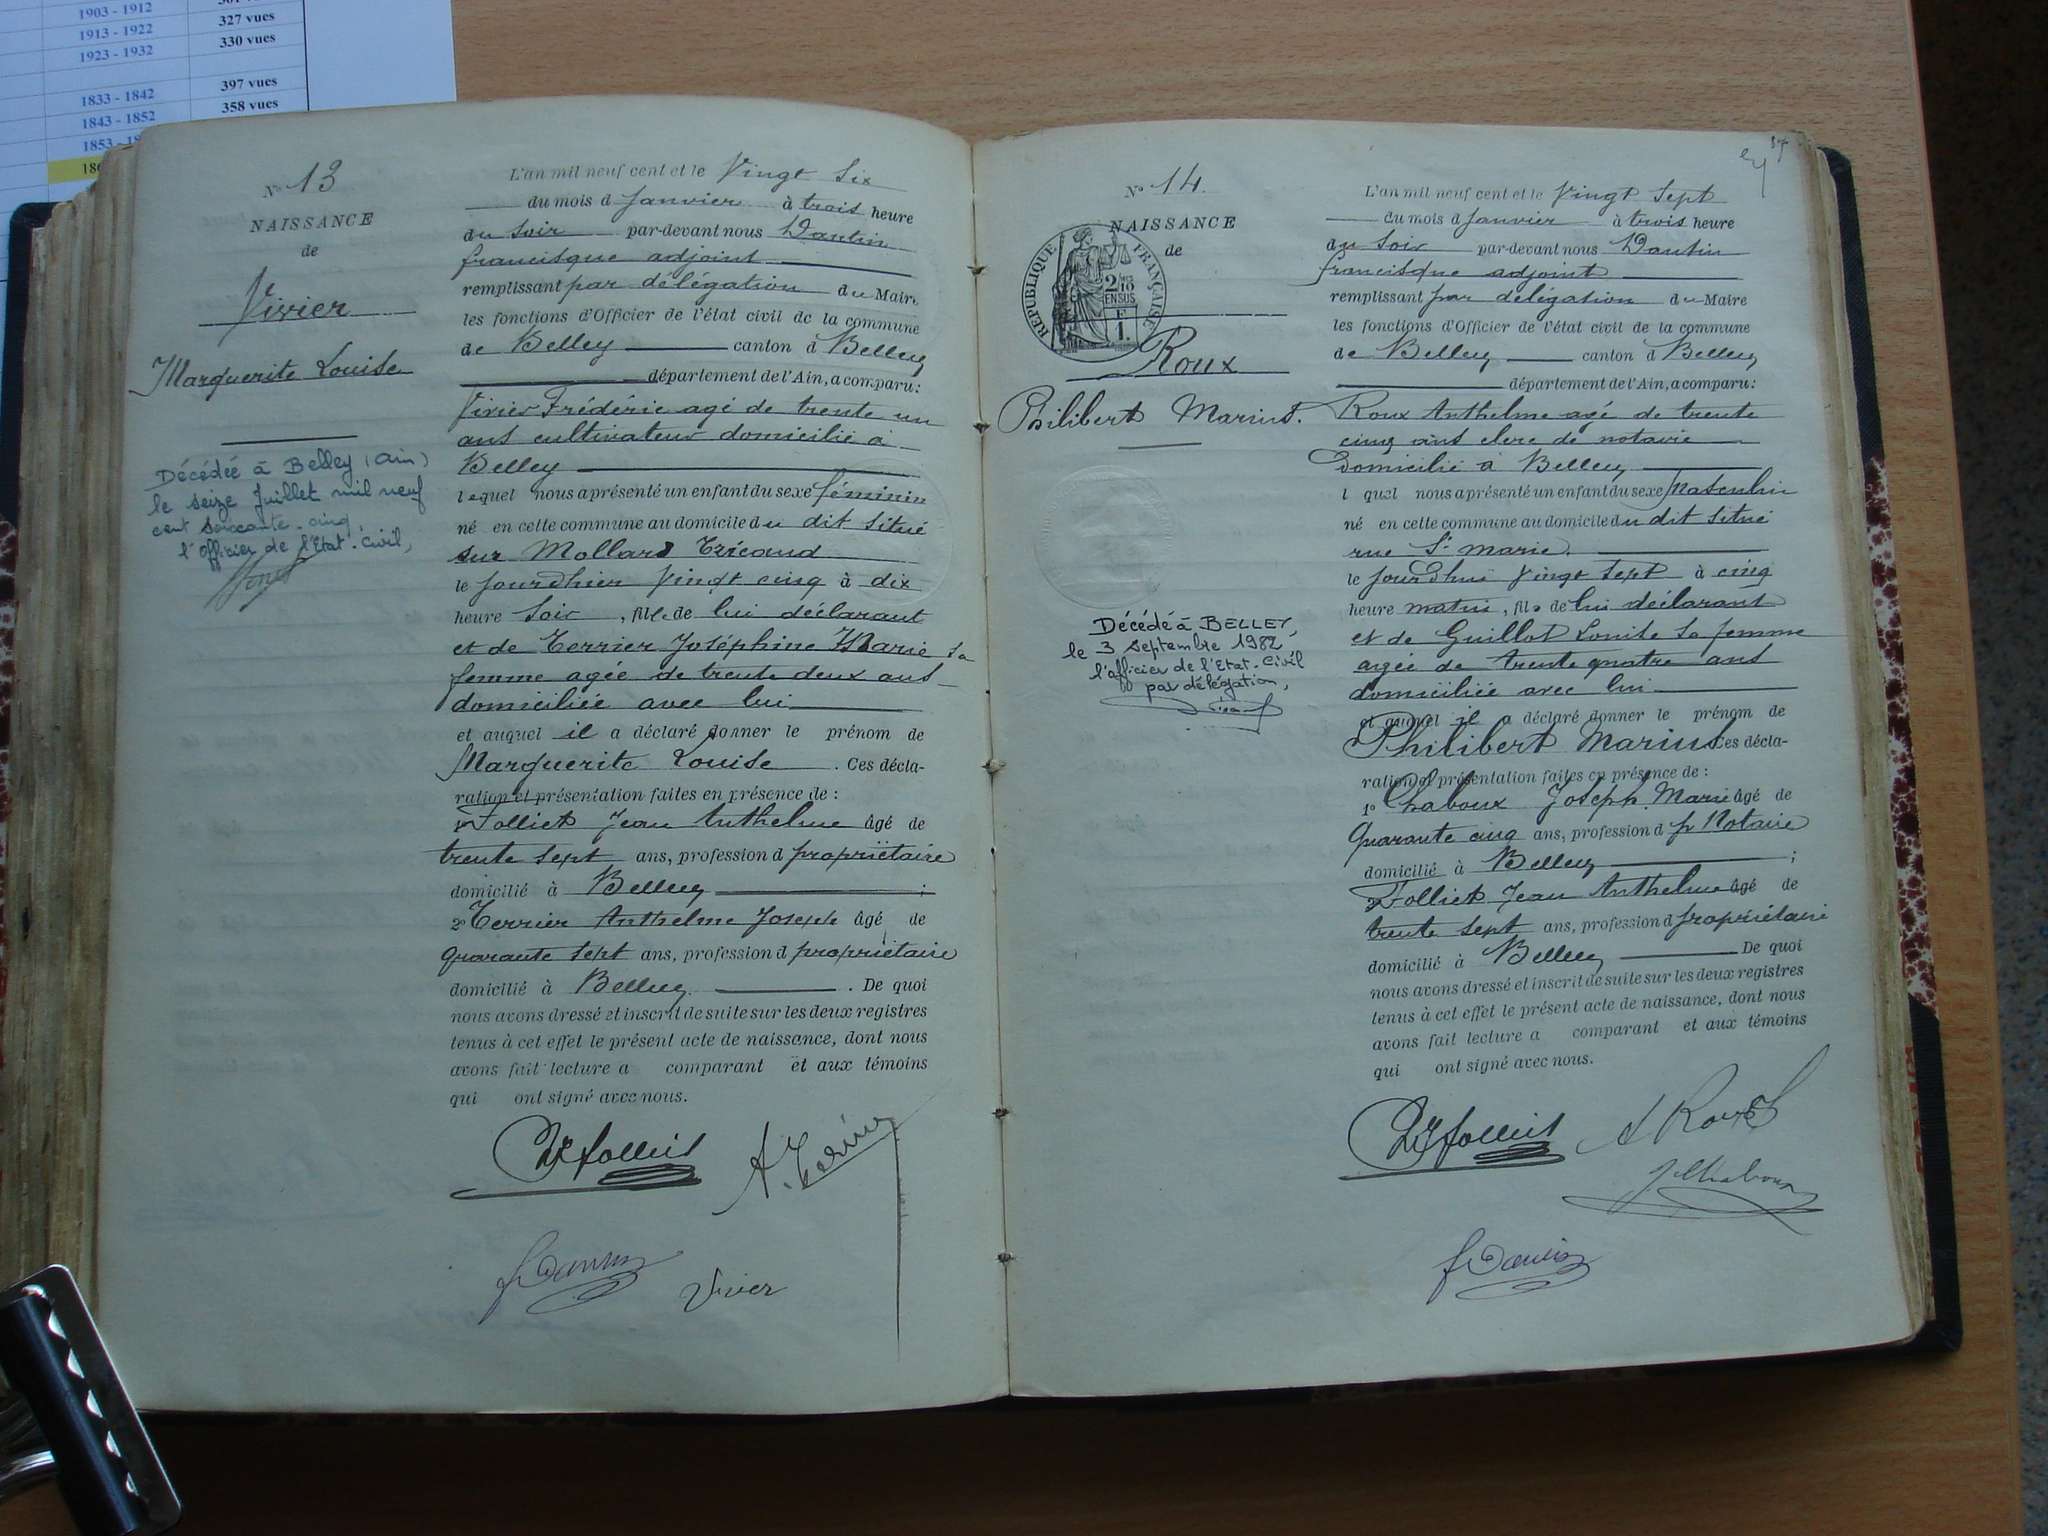 1903 - 1912
1913 - 1922
327 vues
1923 - 1932
330 vues
1833 - 1842
397 vues
1843 - 1852
358 vues
1853 -
N° 13
NAISSANCE
de
Vivier
Marguerite Louise
Décédée à Belley (Ain)
le seize Juillet mil neuf
cent soixante-cinq,
l'officier de l'Etat-civil,
L'an mil neuf cent et le Vingt Six
du mois d Janvier à trois heure
du Soir par-devant nous Dantin
francisque adjoint
remplissant par délégation du Maire
les fonctions d'Officier de l'état civil de la commune
de Belley canton d Belley
département de l'Ain, a comparu:
Vivier Frédéric agé de trente un
ans cultivateur domicilié à
Belley
lequel nous a présenté un enfant du sexe féminin
né en cette commune au domicile du dit situé
sur Mollard Tricaud
le jourdhier Vingt cinq à dix
heure Soir, fille de lui déclarant
et de Terrier Joséphine Marie sa
femme agée de trente deux ans
domiciliée avec lui
et auquel il a déclaré donner le prénom de
Marguerite Louise. Ces décla-
ration et présentation faites en présence de :
1° Folliet Jean Anthelme âgé de
trente sept ans, profession d propriétaire
domicilié à Belley ;
2° Terrier Anthelme Joseph âgé de
quarante sept ans, profession d propriétaire
domicilié à Belley. De quoi
nous avons dressé et inscrit de suite sur les deux registres
tenus à cet effet le présent acte de naissance, dont nous
avons fait lecture a comparant et aux témoins
qui ont signé avec nous.
Folliet
Vivier
57
N° 14.
NAISSANCE
de
REPUBLIQUE FRANÇAISE
2/10
EN SUS
1.
Roux
Philibert Marius.
Décédé à BELLEY,
le 3 septembre 1982
l'officier de l'Etat-Civil
par délégation,
L'an mil neuf cent et le Vingt Sept
du mois d Janvier à trois heure
du Soir par-devant nous Dantin
francisque adjoint
remplissant par délégation du Maire
les fonctions d'Officier de l'état civil de la commune
de Belley canton d Belley
département de l'Ain, a comparu:
Roux Anthelme agé de trente
cinq ans clerc de notaire
domicilié à Belley
l quel nous a présenté un enfant du sexe Masculin
né en cette commune au domicile du dit situé
rue St marie.
le jourdhui Vingt Sept à cinq
heure matin, fils de lui déclarant
et de Guillot Louise sa femme
agée de trente quatre ans
domiciliée avec lui
et auquel il a déclaré donner le prénom de
Philibert Marius Ces décla-
ration et présentation faites en présence de :
1° Chaboux Joseph Marie âgé de
Quarante cinq ans, profession d pr Notaire
domicilié à Belley ;
2° Folliet Jean Anthelme âgé de
trente sept ans, profession d propriétaire
domicilié à Belley De quoi
nous avons dressé et inscrit de suite sur les deux registres
tenus à cet effet le présent acte de naissance, dont nous
avons fait lecture a comparant et aux témoins
qui ont signé avec nous.
Folliet
A Roux
J Chaboux